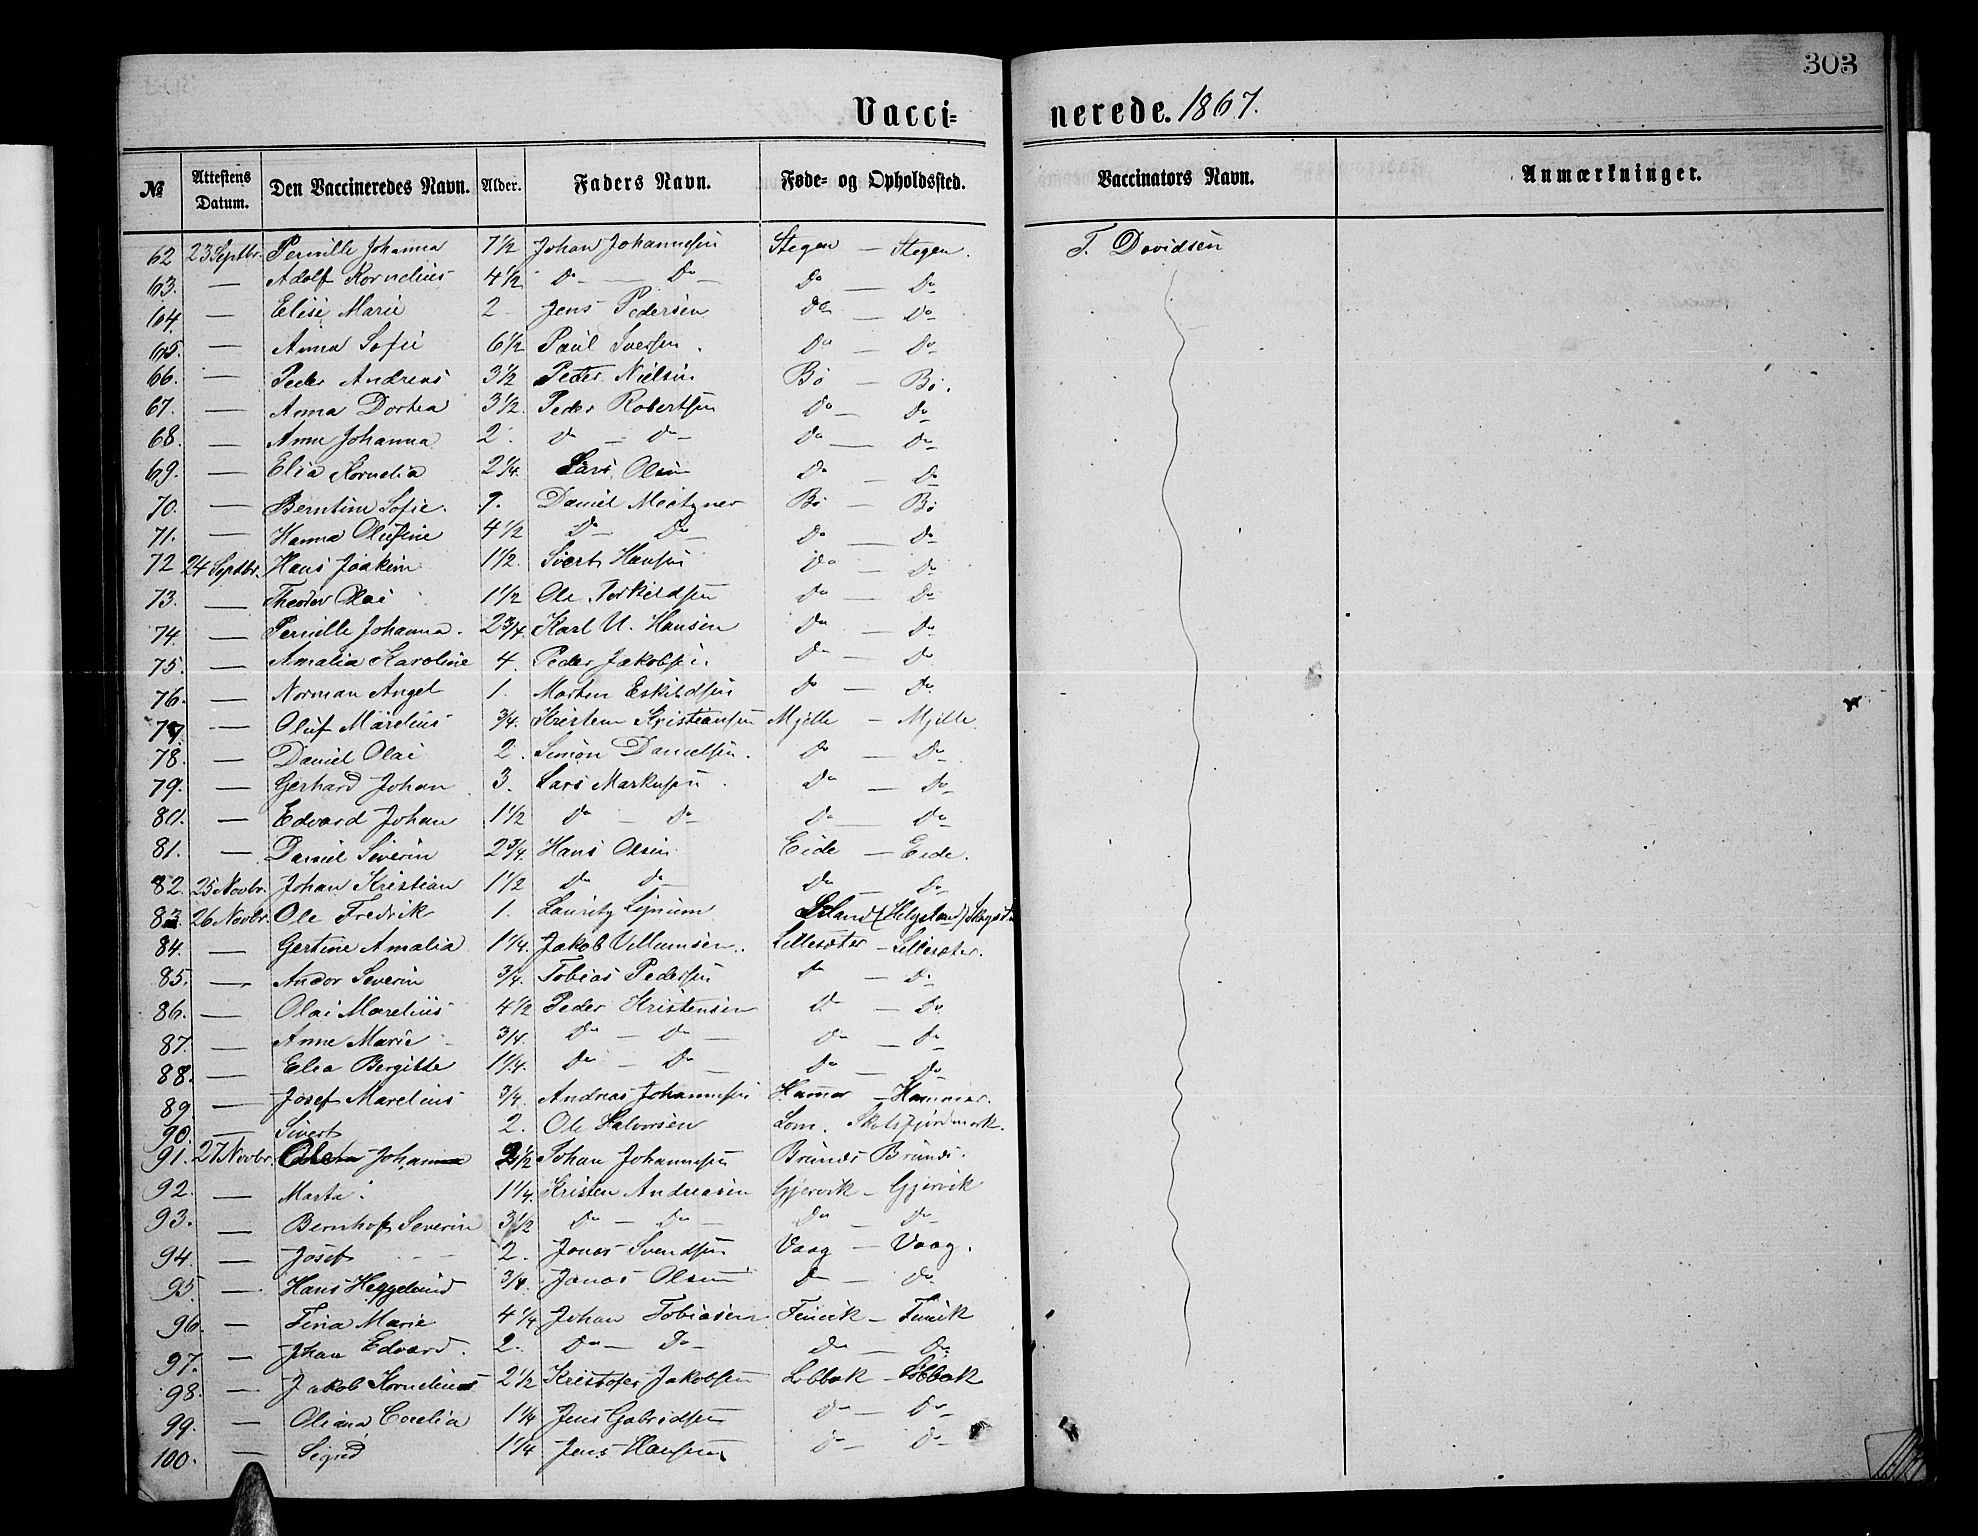 303
Vacci= nerede. 1867.
№ Attestens Datum. Den Vaccineredes Navn. Alder. Faders Navn. Føde- og Opholdssted. Vaccinators Navn. Anmærkninger.
62 23 Septbr. Pernille Johanna 7 1/2 Johan Johannesen Stegen — Stegen. T. Davidsen
63. — Adolf Kornelius 4 1/2 Do — Do — Do — Do
64. — Elise Marie 2 Jens Pedersen Do — Do
65. — Anna Sofie 6 1/2 Paul Iversen. Do — Do
66. — Peder Andreas 3 1/2 Peder Nielsen Bø — Bø.
67. — Anna Dorthea 3 1/2. Peder Robertsen Do — Do
68. — Anne Johanna 2. Do — Do — Do — Do
69. — Elia Kornelia 2 1/4. Lars Olsen Do — Do
70. — Berntine Sofie. 9. Daniel Bø — Bø
71. — Hanna Olufine 4 1/2 Do — Do — Do — Do
72 24 Septbr. Hans Joakim 1 1/2. Sivert Hansen Do — Do
73. — Theodor Olai 1 1/2 Ole Torkildsen Do — Do
74. — Pernille Johanna. 2 3/4. Karl U. Hansen Do — Do
75. — Amalia Karoline 4. Peder Jakobsen. Do — Do
76. — Norman Angel 1. Morten Eskildsen Do — Do
77. — Oluf Marelius 3/4. Kristen Kristiansen Mjelle — Mjelle.
78. — Daniel Olai 2. Simon Danielsen. Do — Do
79. — Gerhard Johan 3. Lars Markusen Do — Do
80. — Edvard Johan 1 1/2 Do — Do Do — Do
81. — Daniel Severin 2 3/4. Hans Olsen Eide — Eide.
82. 25 Novbr. Johan Kristian 1 1/2 Do Do — Do — Do
83 26 Novbr. Ole Fredrik 1. Lauritz (Helgeland)
84. — Gertine Amalia 1 1/4. Jakob Villumsen. Lillesæter — Lillesæter.
85. — Andor Severin 3/4. Tobias Pedersen Do — Do
86. — Olai Marelius 4 1/2 Peder Kristensen Do — Do
87. — Anne Marie 3/4. Do — Do — Do — Do
88. — Elea Bergitte 1 1/4. Do — Do — Do — Do
89 — Josef Marelius 3/4. Andreas Johannesen Hamar — Hammar.
90. — Sivert 2. Ole Halvorsen Lom.
91. 27 Novbr. Johanna 2 1/2 Johan Johannesen Brunes Brunes.
92. — Marta 1 1/4. Kristen Andreasen Gjervik — Gjervik
93. — Bernhof Severin 3 1/2 Do — Do — Do — Do
94. — Josef 2. Jonas Svendsen Vaag — Vaag.
95. — Hans Heggelund 3/4. Jonas Olsen Do — Do
96. — Tina Marie 4 1/4 Johan Tobiasen Finvik — Finvik
97. — Johan Edvard. 2. Do — Do — Do — Do
98. — Jakob Kornelius 2 1/2 Kristofer Jakobsen Løbbak — Løbbak
99. — Oliana Cecelia 1 1/4 Jens Gabrielsen Do — Do
100. — Signe 1 1/4 Jens Hansen Do — Do